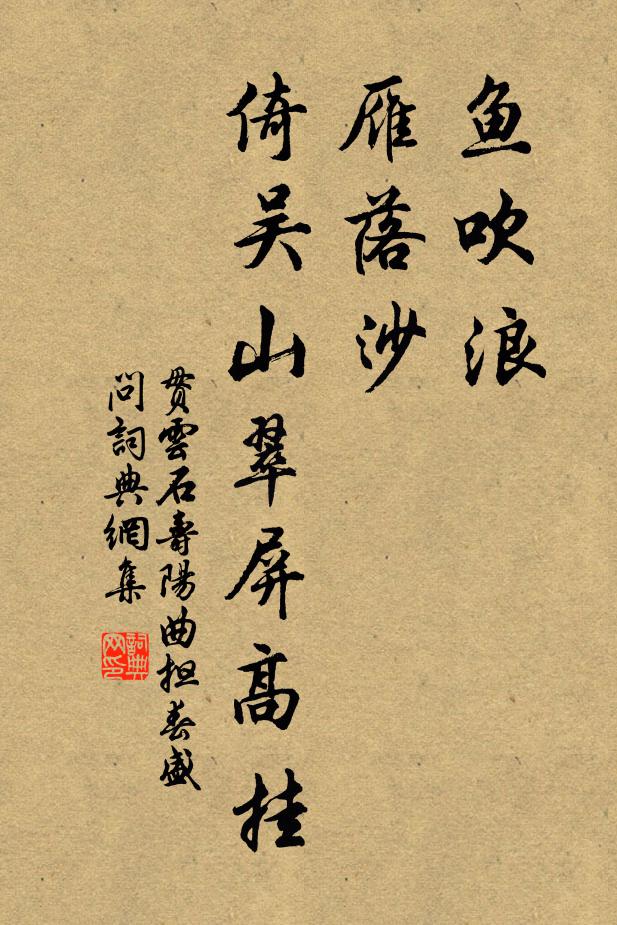 鱼吹浪
雁落沙
倚吴山翠屏高挂
贯雲石壽陽曲担春盛
问詞典網集
詞典
网印